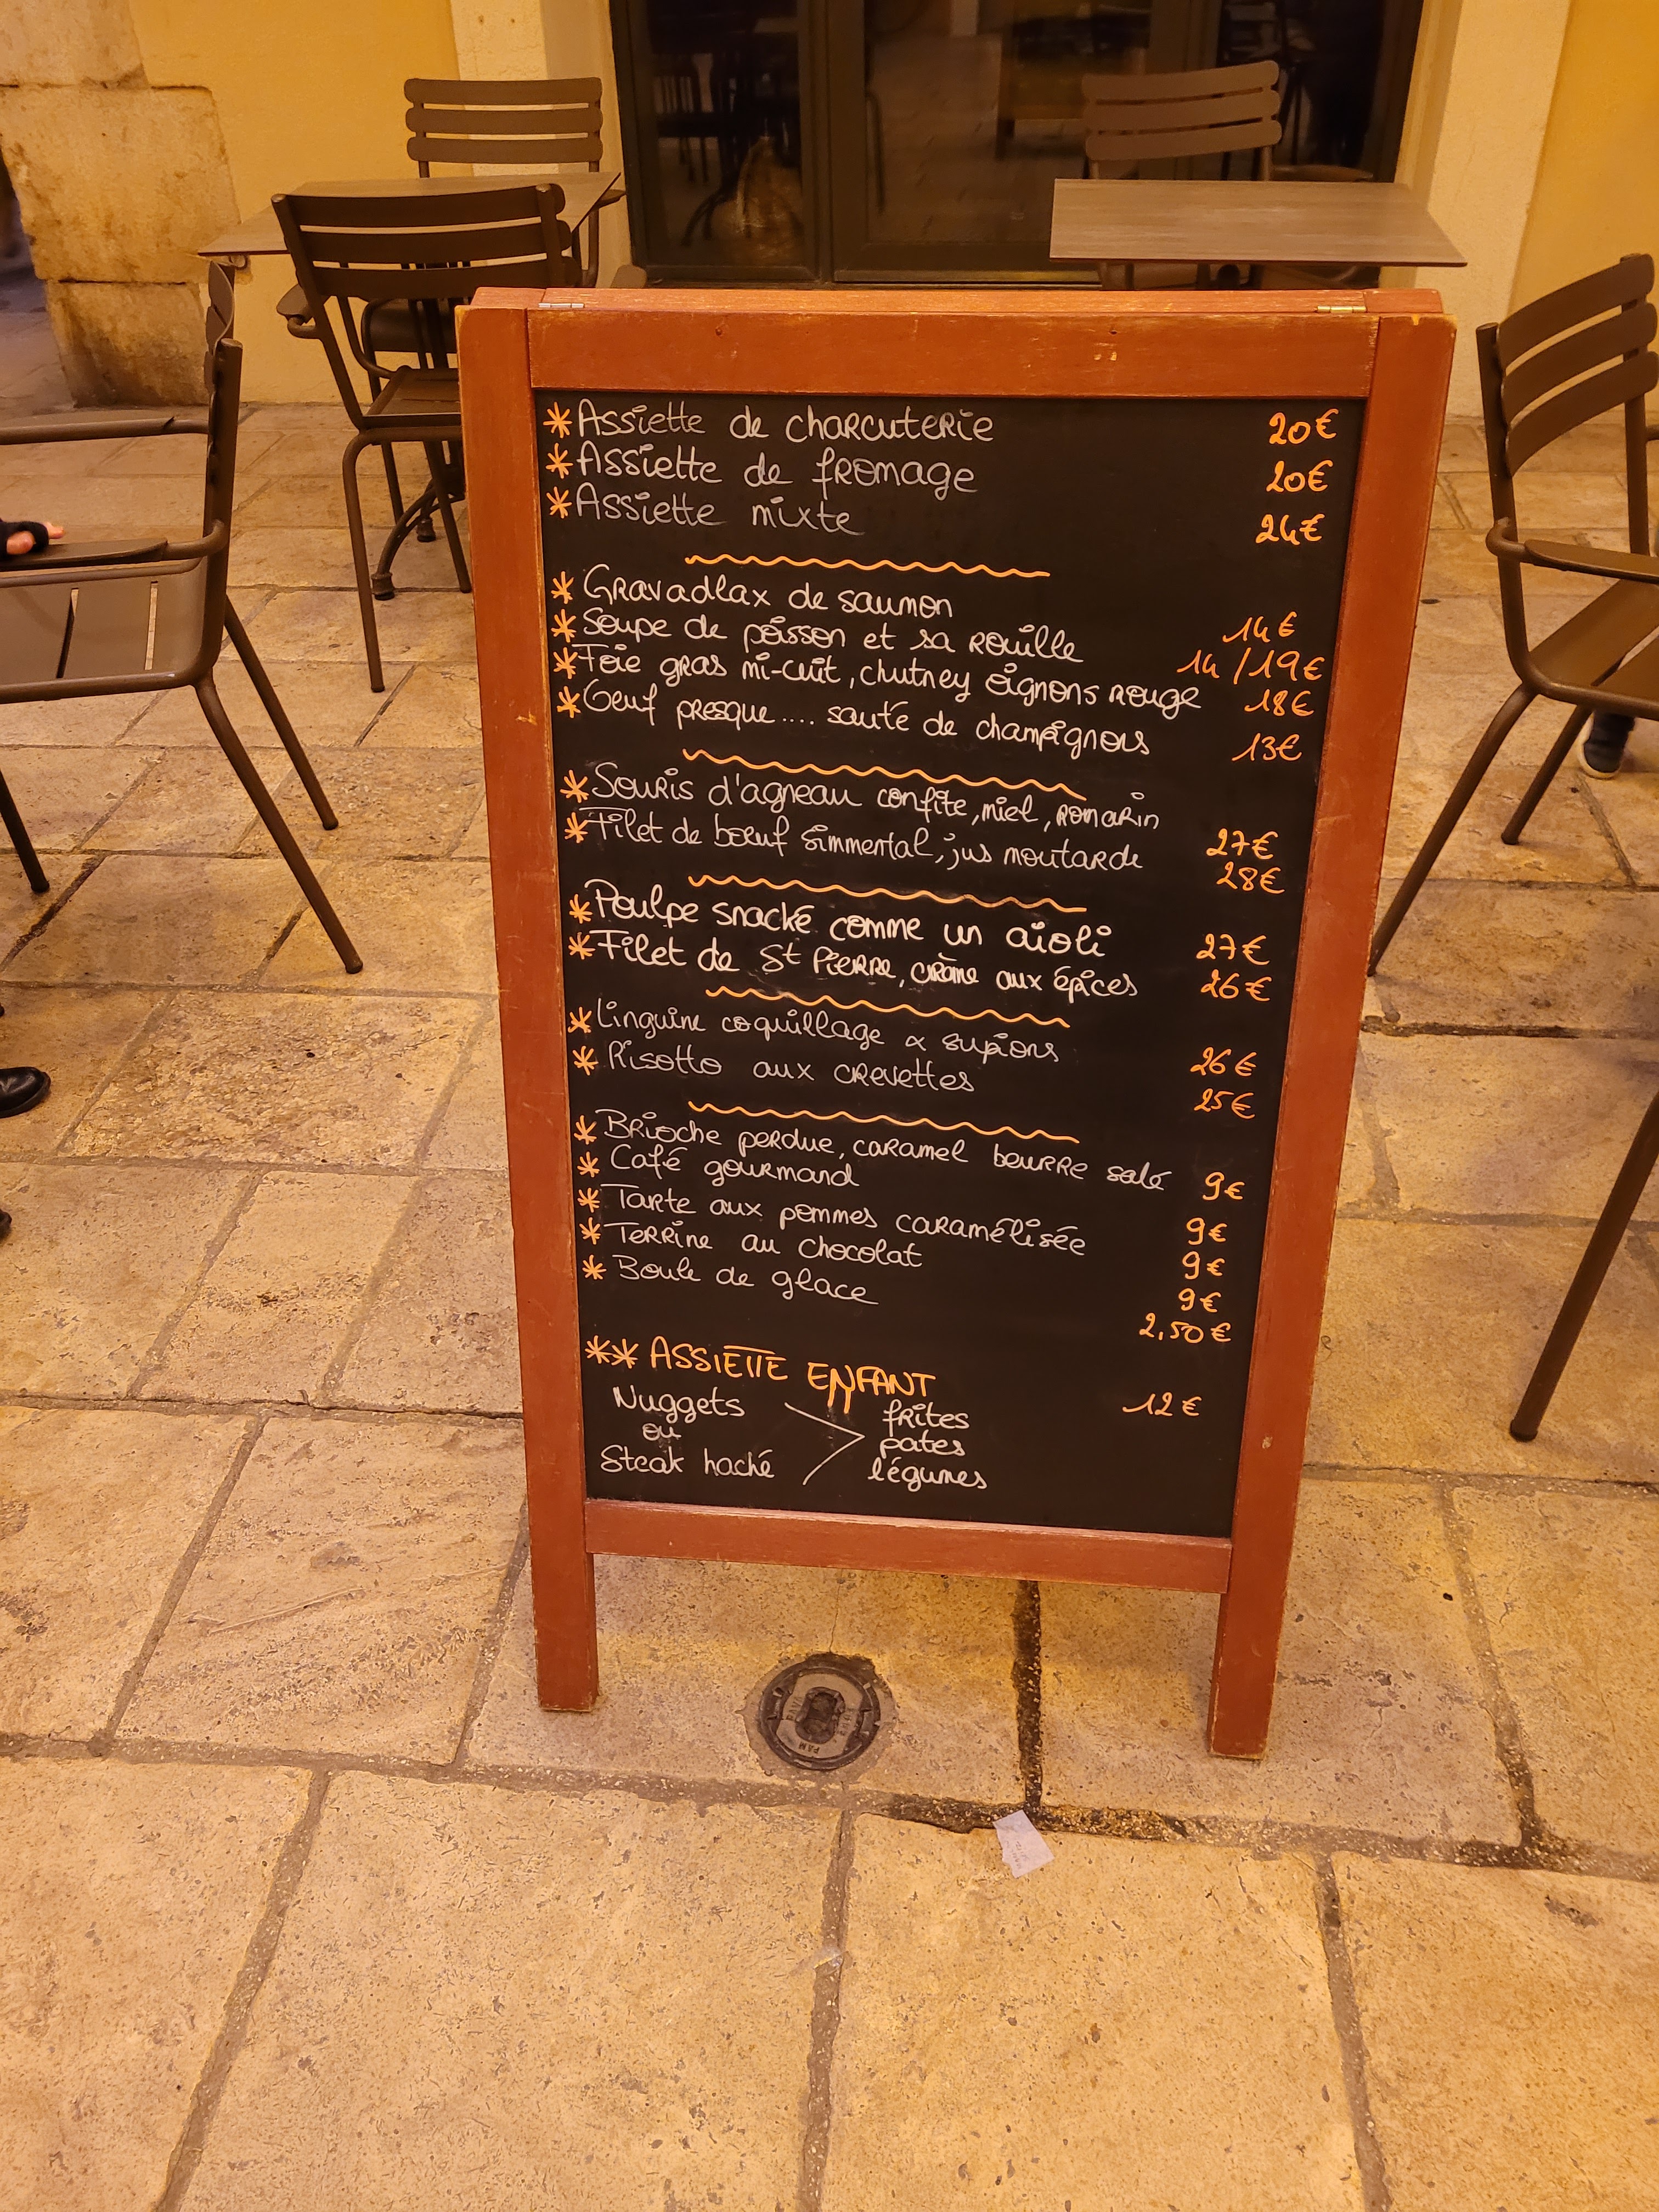 *Assiette de charcuterie 20€
*Assiette de fromage 20€
*Assiette mixte 24€
* Gravadlax de saumon 14€
* Soupe de poisson et sa rouille 14/19€
*Foie gras mi-cuit, chutney oignons rouge 18€
*Oeuf presque.... sauté de champignons 13€
*Souris d'agneau confite, miel, romarin 27€
*Filet de bœuf simmental, jus moutarde 28€
*Poulpe snacké comme un aïoli 27€
*Filet de St Pierre, crème aux épices 26€
*Linguine coquillage & supions 26€
* Risotto aux crevettes 25€
* Brioche perdue, caramel beurre salé 9€
* Café gourmand 9€
* Tarte aux pommes caramélisée 9€
* Terrine au chocolat 9€
* Boule de glace 2,50€
** ASSIETTE ENFANT 12€
Nuggets frites
ou pates
Steak haché légumes